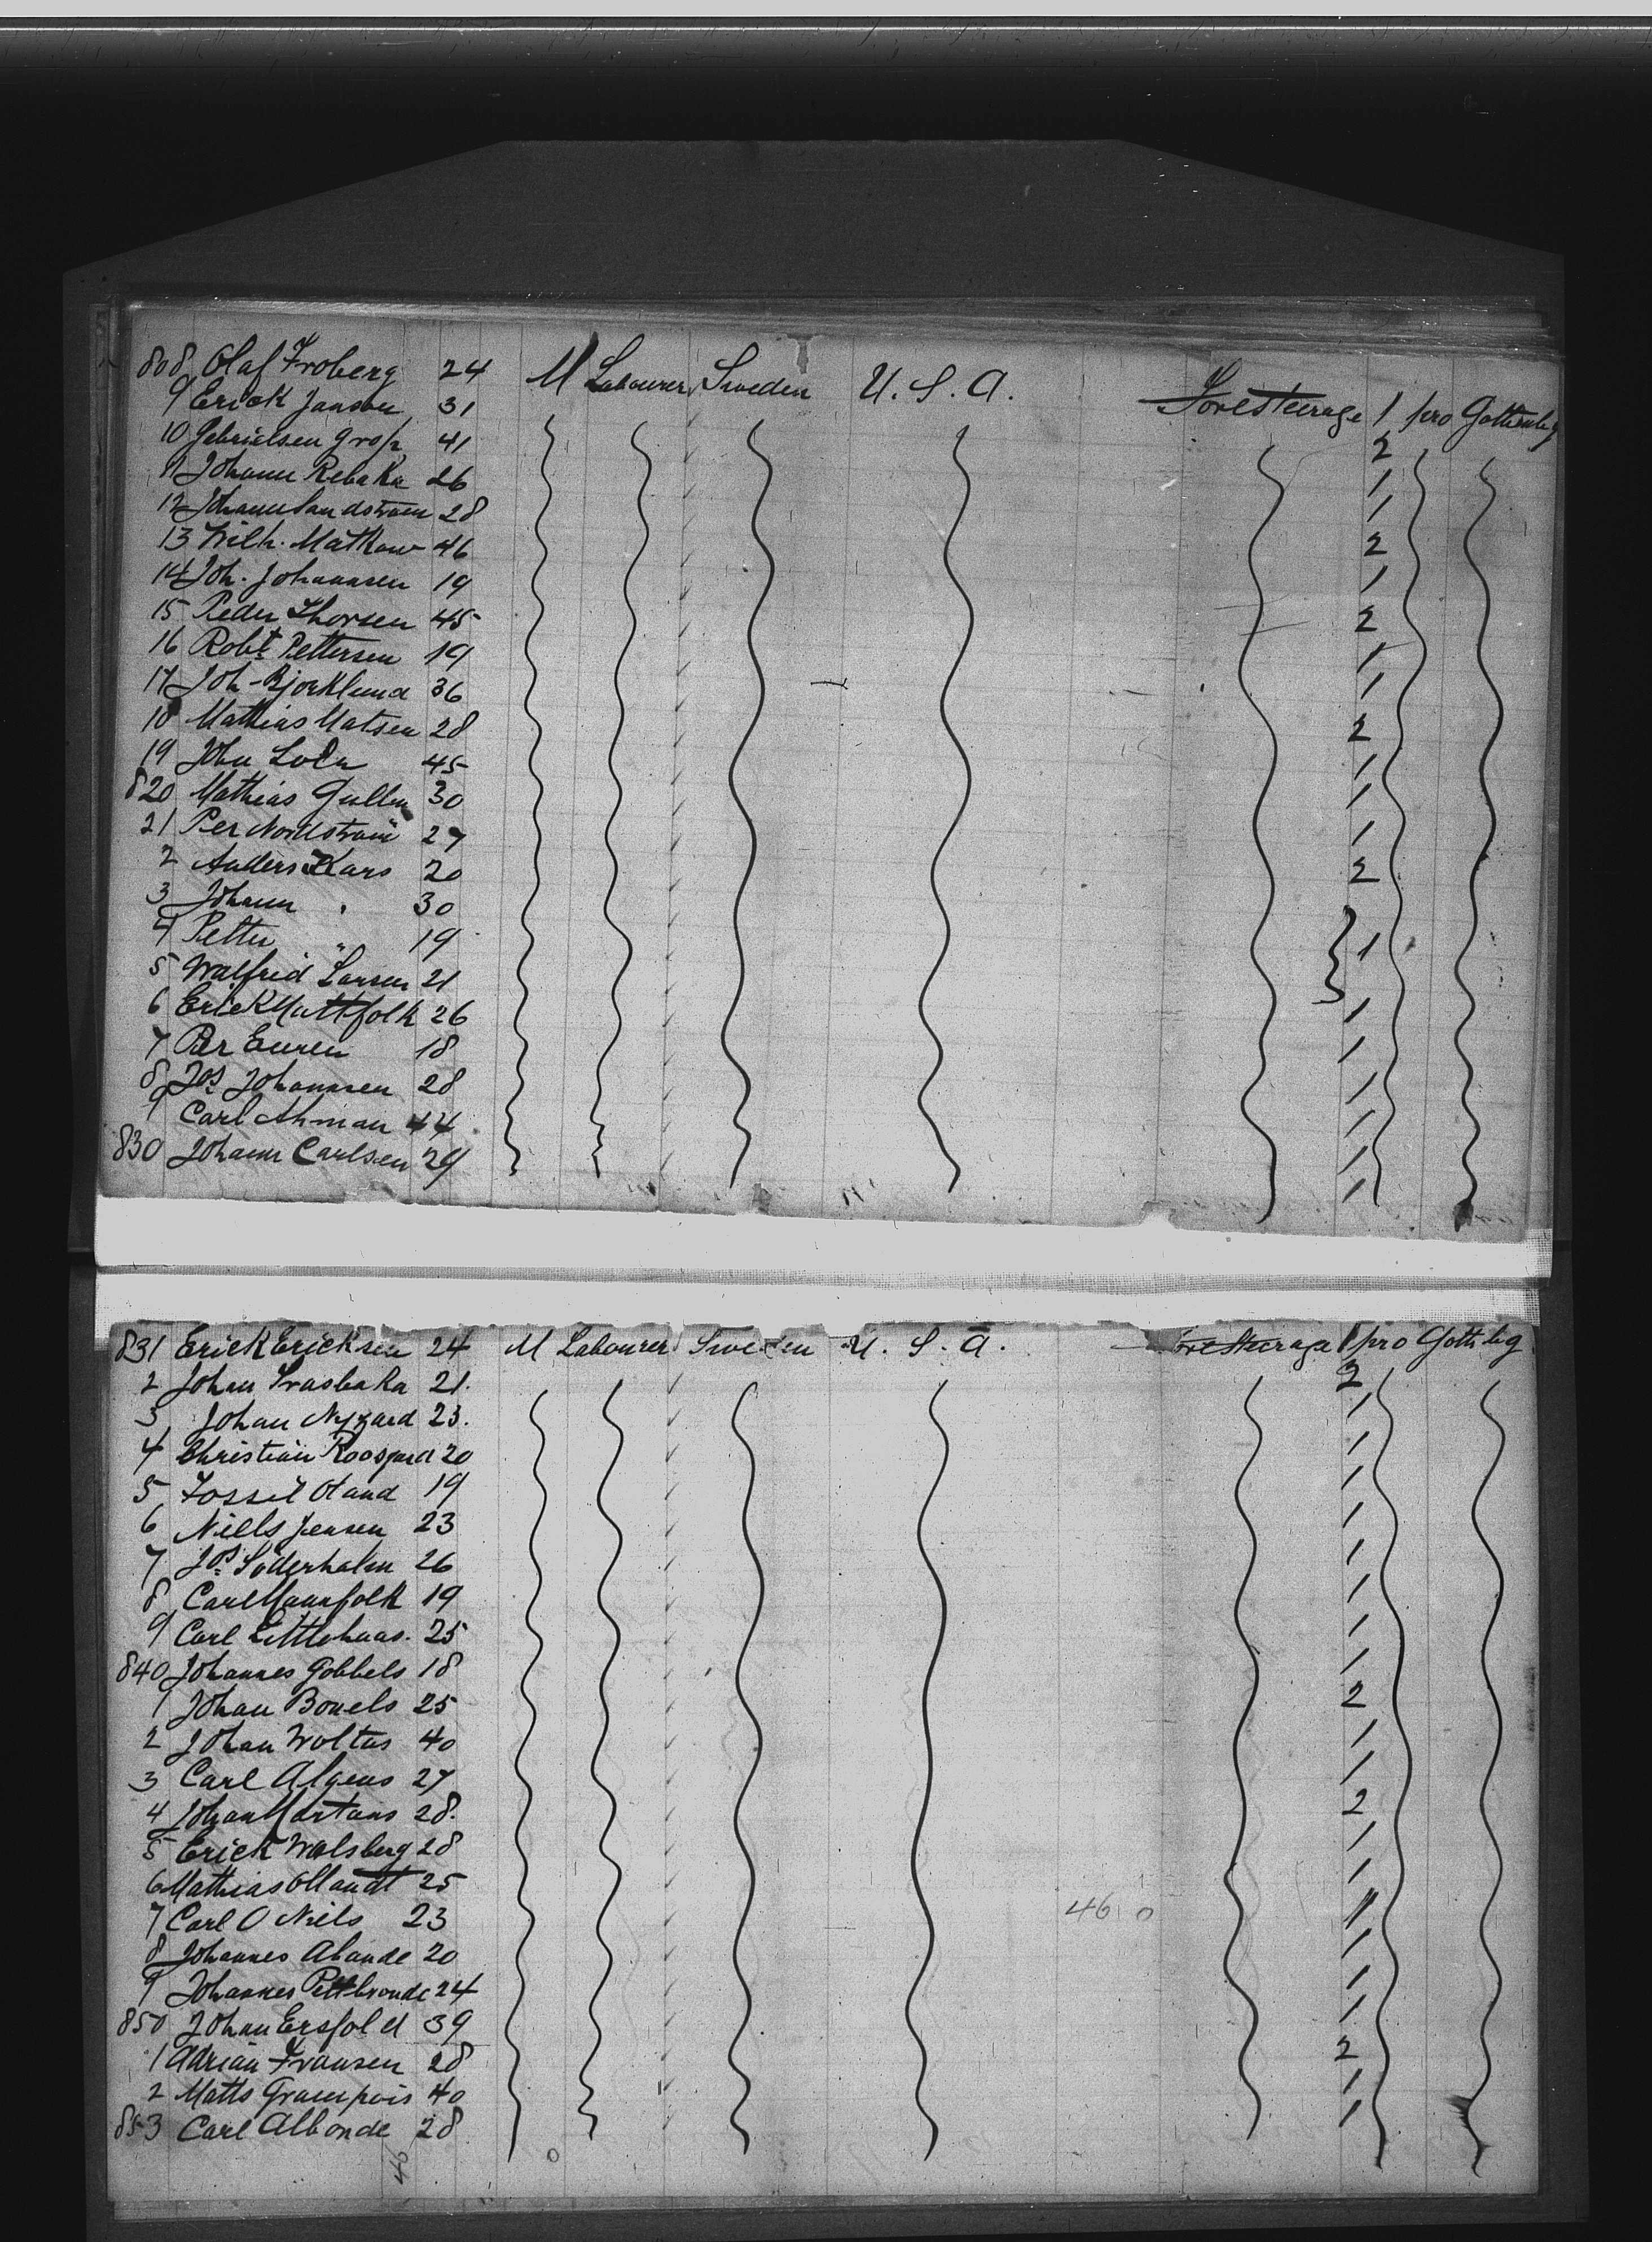 808 Olaf Froberg 24 M Labourer Sweden U. S. A. Foresteerage 1 pro Gothenbg
9 Erick Janson 31 2
10 Gabrielsen Grop 41 1
11 Johann Rebaka 26 1
12 Johann Sandstrom 28 2
13 Wilh. Mathow 46 1
14 Joh. Johannsen 19 2
15 Peder Thorsen 45 1
16 Robt Pettersen 19 1
17 Joh Bjorklund 36 2
18 Mathias Matsen 28 1
19 John 45 1
820 Mathias Gullen 30 1
21 Per Nordstrom 27 2
2 Anders Kars 20
3 Johann " 30 1
4 Petter " 19
5 Walfrid Larsen 21 1
6 Erick Mattfolk 26 1
7 Per Euren 18 1
8 Jos Johannsen 28 1
9 Carl Ahman 44 1
830 Johann Carlsen 29 1
831 Erick Ericksen 24 M Labourer Sweden U. S. A. Foresteerage 1 pro Gothbg
2 Johan Frasbaka 21. 2
3 Johan Nygard 23. 1
4 Christian Roosgard 20 1
5 Fossil Oland 19 1
6 Niells Jensen 23 1
7 Jos Soderholm 26 1
8 Carl Mannfolk 19 1
9 Carl Littlehaas. 25 1
840 Johannes Gobbels 18 1
1 Johan Bonels 25 2
2 Johan Woltus 40 1
3 Carl Algens 27 1
4 Johan Martans 28. 2
5 Erick Walsberg 28 1
6 Mathias Ollandt 25 1
7 Carl O Niels 23 46 0 1
8 Johannes Abande 20 1
9 Johannes Pettbronde 24 1
850 Johan Ersfold 39 1
1 Adrian Fransen 28 2
2 Matts Grampois 40 1
853 Carl Albonde 28 1
46 0